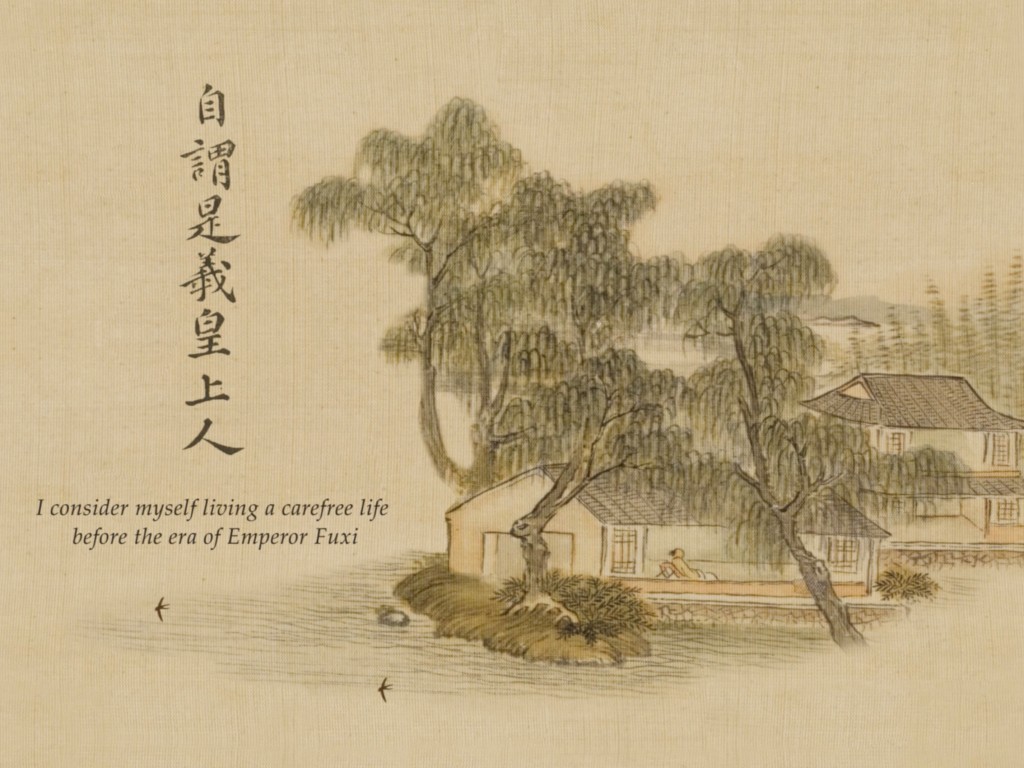 自謂是羲皇上人
I consider myself living a carefree life
before the era of Emperor Fuxi